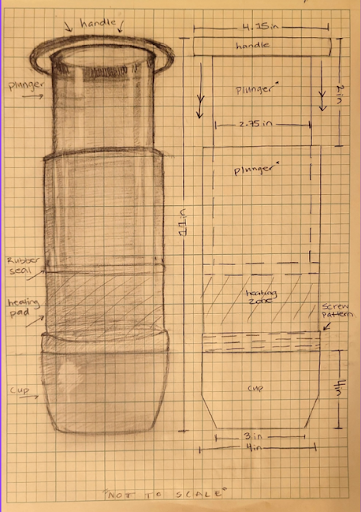 handle
plunger
Rubber
seal
heating
pad
cup
11in
4.25in
handle
plunger*
2in
2.75in
plunger*
heating
zone
screw
pattern
cup
3in
4in
"NOT TO SCALE"